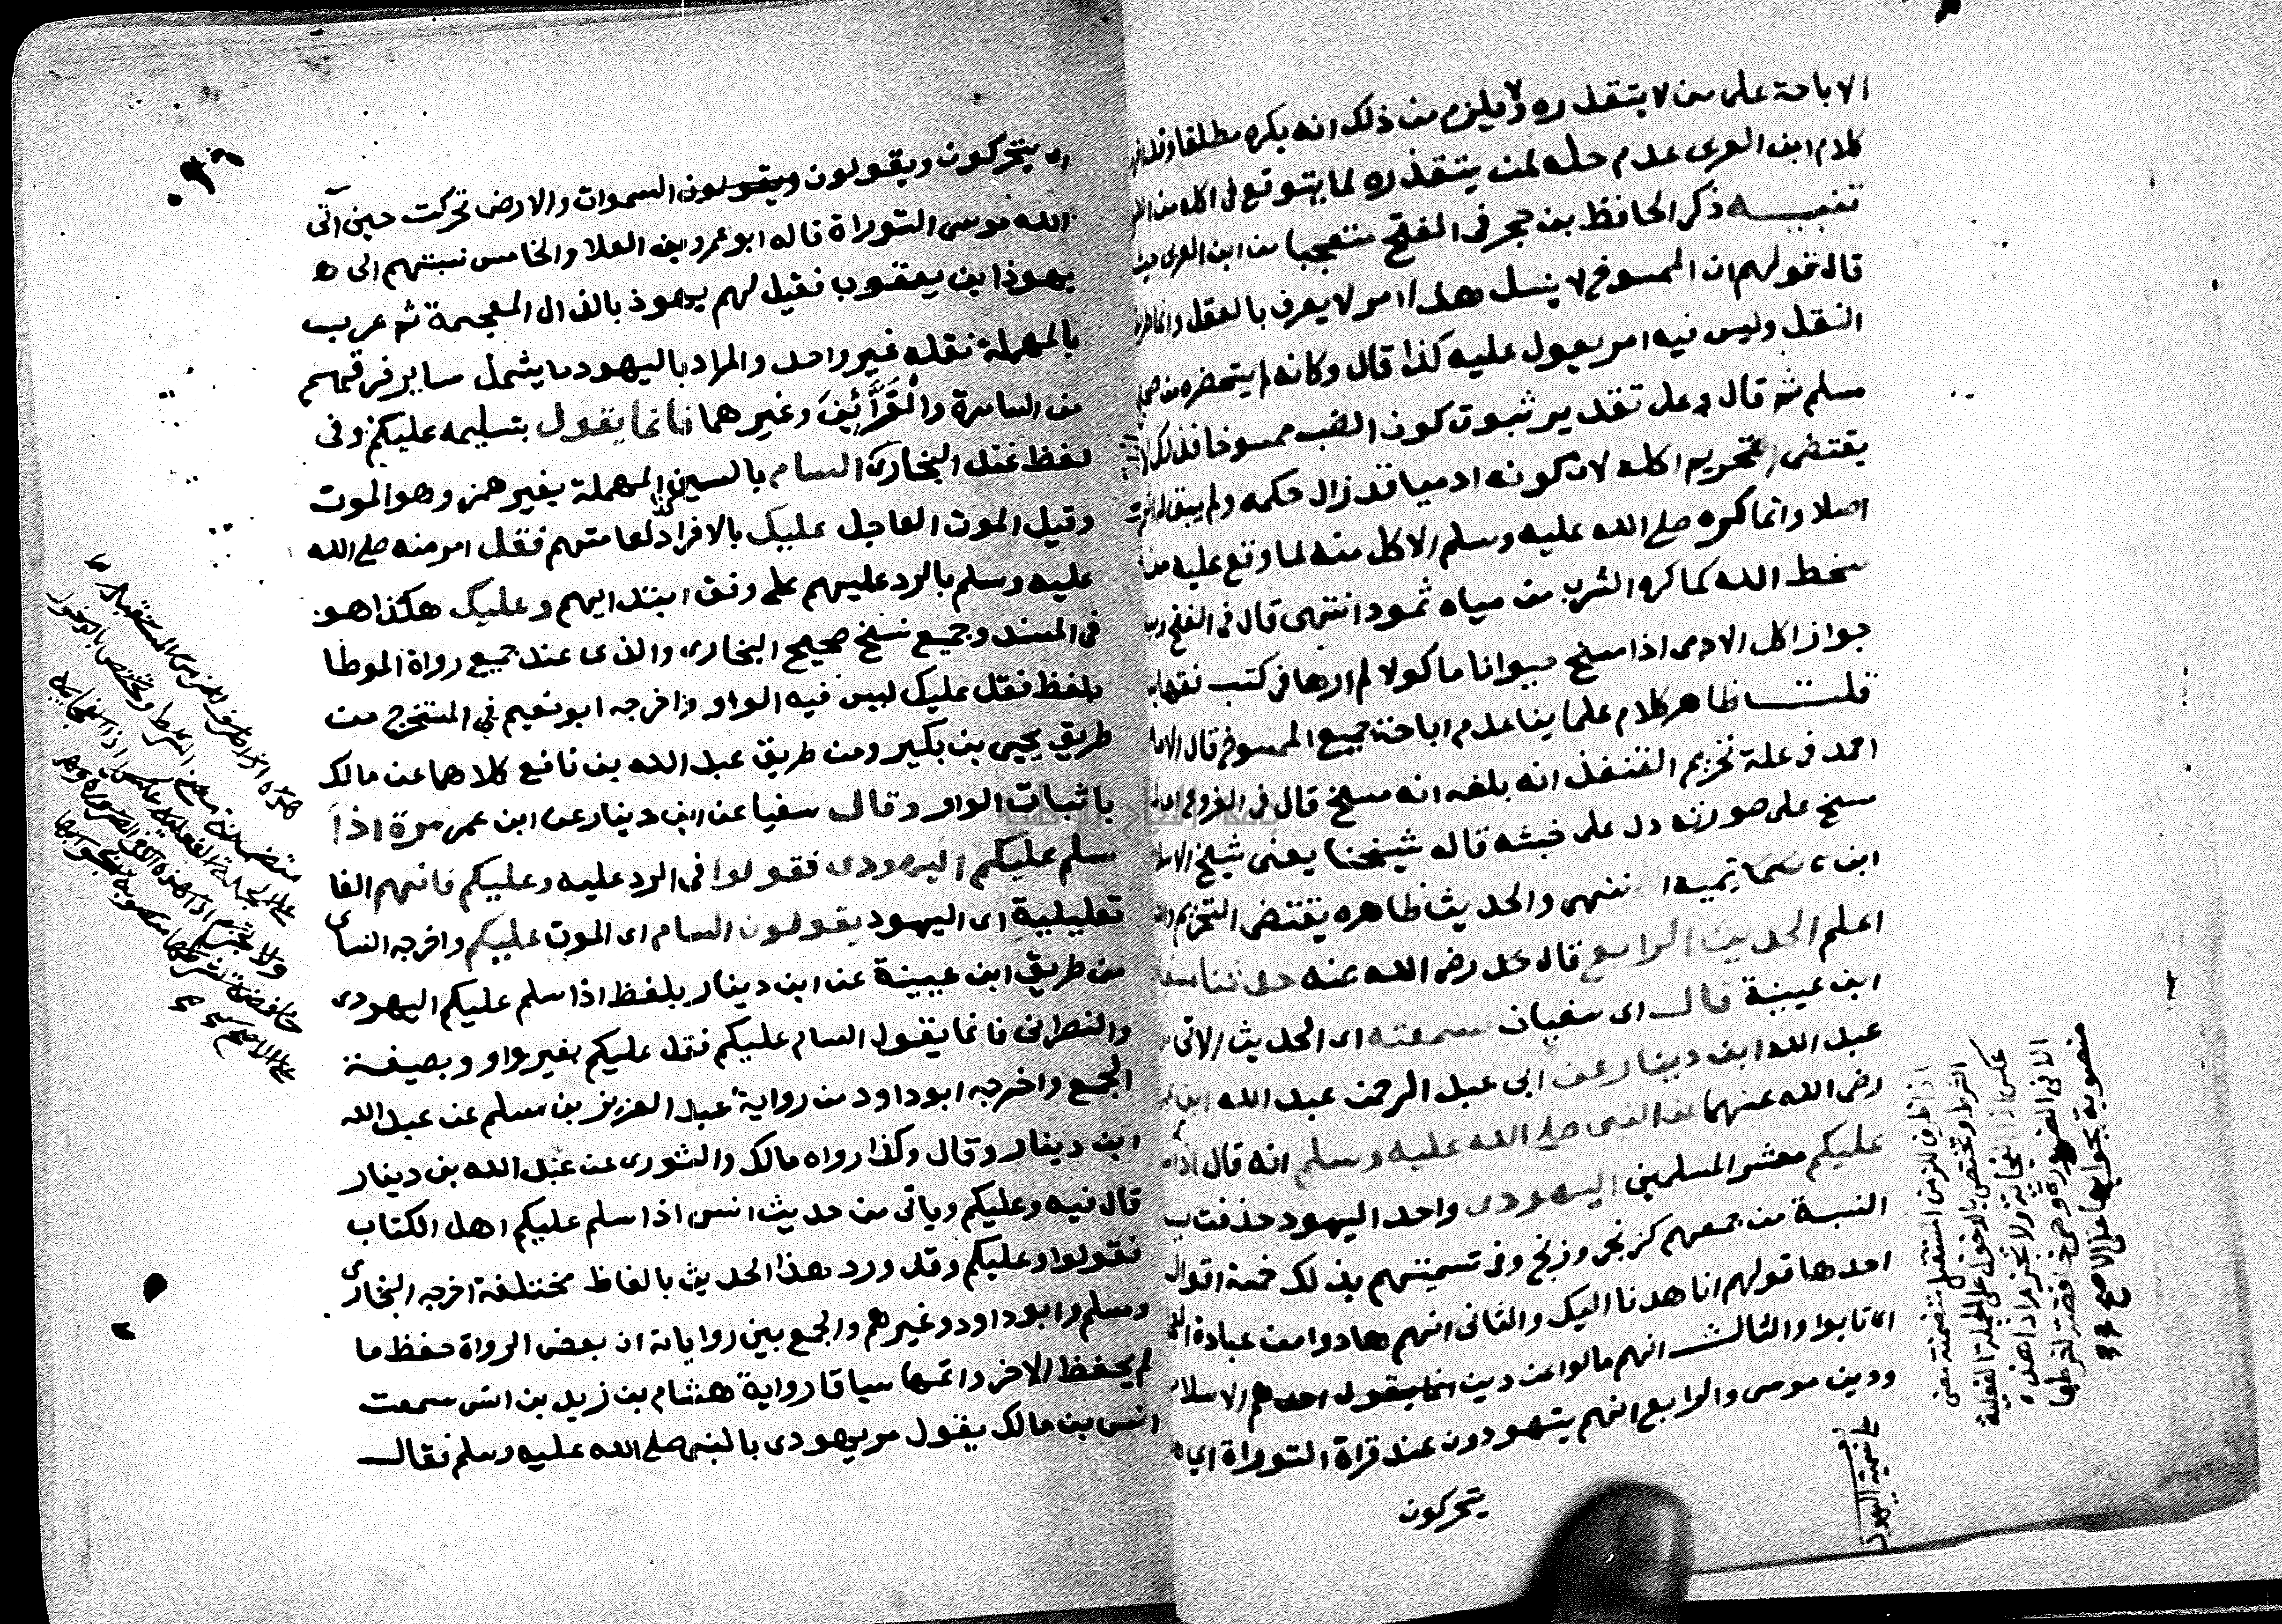 الاباحة على من لا يتقذره ولا يلزم من ذلك انه يكره مطلقا
كلام ابن العربى عدم حله لمن يتقذره لما يتوقع فى اكله من
تنبيه ذكر الحافظ بن حجر فى الفتح متعجبا من ابن العربى حيث
قال قولهم ان الممسوخ لا ينسل هذا امر لا يعرف بالعقل وانما طريقه
النقل وليس فيه امر يعول عليه كذا قال وكانه لم يستحضره من صحيح
مسلم ثم قال وعلى تقدير ثبوت كون الضب ممسوخا فذلك لا
يقتضى تحريم اكله لان كونه ادميا قد زال حكمه ولم يبق له اثر
اصلا وانما كره صلى الله عليه وسلم الاكل منه لما وقع عليه من
سخط الله كما كره الشرب من مياه ثمود انتهى قال فى الفتح
جواز اكل الادمى اذا مسخ حيوانا ماكولا لم ارها فى كتب فقهاينا
قلت ظاهر كلام علماينا عدم اباحة جميع الممسوخ قال الامام
احمد فى علة تحريم القنفذ انه بلغه انه مسخ قال فى الفروع
مسخ على صورته دل على خبثه قاله شيخنا يعنى شيخ الاسلام
ابن تيمية انتهى والحديث ظاهره يقتضى التحريم والله
اعلم الحديث الرابع قال رضى الله عنه حدثنا سفيان
ابن عيينة قال اى سفيان سمعته اى الحديث الاتى من
عبد الله ابن دينار عن ابى عبد الرحمن عبد الله ابن عمر
رضى الله عنهما عن النبى صلى الله عليه وسلم انه قال اذا سلم
عليكم معشر المسلمين اليهودى واحد اليهود حذفت ياء
النسبة من جمعهم كزنجى وزنج وفى تسميتهم بذلك خمسة اقوال
احدها قولهم انا هدنا اليك والثانى انهم هادوا من عبادة العجل
اى تابوا والثالث انهم مالوا عن دين الاسلام
ودين موسى والرابع انهم يتهودون عند قراة التوراة اى
يتحركون
اذا ظرف للزمن المستقبل متضمنة معنى
الشرط وتختص بالدخول على الجملة الفعلية
عكس اذا الفجائية ولا تجزم اذا هذه
الا فى الضرورة وهى خافضة لشرطها
منصوبة بجوابها على الاصح
تسمية اليهود
اى يتحركون ويقولون ويقولون السموات والارض تحركت حين اتى
الله موسى التوراة قاله ابو عمرو ابن العلا والخامس نسبتهم الى
يهوذا بن يعقوب فقيل لهم يهوذ بالذال المعجمة ثم عرب
بالمهملة نقله غير واحد والمراد باليهود ما يشمل ساير فرقهم
من السامرة والقرائين وغيرهما فانما يقول بتسليمه عليكم وفى
لفظ عند البخارى السام بالسين المهملة بغير همز وهو الموت
وقيل الموت العاجل عليك بالافراد لعامتهم فقل امر منه صلى الله
عليه وسلم بالرد عليهم على وفق ابتدايهم وعليك هكذا هو
فى المسند وجميع نسخ صحيح البخارى والذى عند جميع رواة الموطا
بلفظ فقل عليك ليس فيه الواو واخرجه ابو نعيم فى المستخرج من
طريق يحيى بن بكير ومن طريق عبد الله بن نافع كلاهما عن مالك
باثبات الواو وقال سفيا عن ابن دينار عن ابن عمر مرة اذا
سلم عليكم اليهودى فقولوا فى الرد عليه وعليكم فانهم الفا
تعليلية اى اليهود يقولون السام اى الموت عليكم واخرجه النساى
من طريق ابن عيينة عن ابن دينار بلفظ اذا سلم عليكم اليهودى
والنصرانى فانما يقول السام عليكم فقل عليكم بغير واو وبصيغة
الجمع واخرجه ابو داود من رواية عبد العزيز بن مسلم عن عبد الله
ابن دينار وقال وكذا رواه مالك والثورى عن عبد الله بن دينار
قال فيه وعليكم وياتى من حديث انس اذا سلم عليكم اهل الكتاب
فقولوا وعليكم وقد ورد هذا الحديث بالفاظ مختلفة اخرجه البخارى
ومسلم وابو داود وغيرهم والجمع بين رواياته ان بعض الرواة حفظ ما
لم يحفظ الاخر واتمها سياقا رواية هشام بن زيد بن انس سمعت
انس بن مالك يقول مر يهودى بالنبى صلى الله عليه وسلم فقال